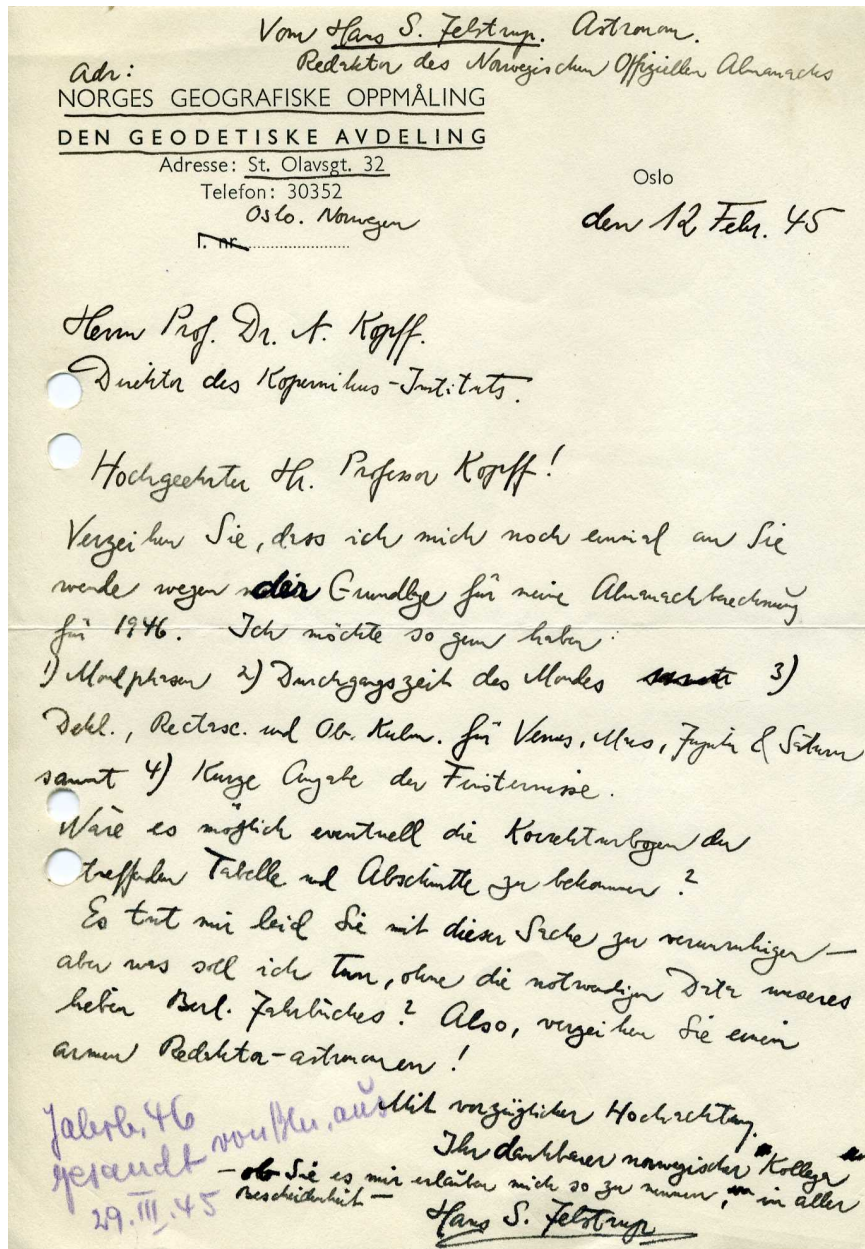 Vom Hans S. Jelstrup. Astronom.
Redaktor des Norwegischen Offiziellen Almanachs
Adr:
NORGES GEOGRAFISKE OPPMÅLING
DEN GEODETISKE AVDELING
Adresse: St. Olavsgt. 32
Telefon: 30352
Oslo. Norwegen
J. nr.
Oslo
den 12 Febr. 45
Herrn Prof. Dr. A. Kopff.
Direktor des Kopernikus-Instituts.
Hochgeehrter Hr. Professor Kopff!
Verzeihen Sie, dass ich mich noch einmal an Sie
wende wegen der Grundlage für meine Almanachberechnung
für 1946. Ich möchte so gern haben:
1) Mondphasen 2) Durchgangszeit des Mondes 3)
Dekl., Rectasc. und Ob. Kulm. für Venus, Mars, Jupiter & Saturn
sammt 4) Kurze Angabe der Finsternisse.
Wäre es möglich eventuell die Korrekturbogen der
treffenden Tabelle und Abschnitte zu bekommen?
Es tut mir leid Sie mit dieser Sache zu verunruhigen —
aber was soll ich tun, ohne die notwendigen Data unseres
lieben Berl. Jahrbuches? Also, verzeihen Sie einem
armen Redaktor-astronomen!
Mit vorzüglicher Hochachtung.
Ihr dankbarer norwegischer "Kollege"
— ob Sie es mir erlauben mich so zu nennen, in aller
Bescheidenheit —
Hans S. Jelstrup
Jahrb. 46
gesandt von Bln. aus
29. III. 45